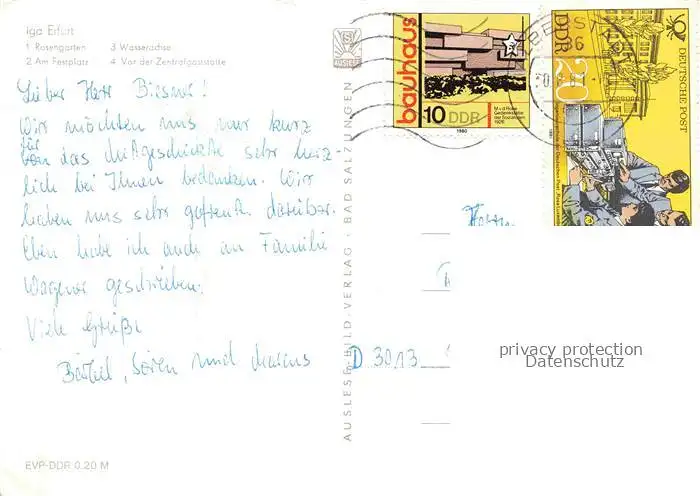 Iga Erfurt
1 Rosengarten 3 Wasserachse
2 Am Festplatz 4 Vor der Zentralgaststätte
Lieber Herr Biesner!
Wir möchten uns nur kurz
für
das Mitgeschickte sehr herz
lich bei Ihnen bedanken. Wir
haben uns sehr gefreut darüber.
Eben habe ich auch an Familie
Wagner geschrieben.
Viele Grüße
Bärbel, Sören und Marcus
EVP-DDR 0.20 M
AUSLESE-BILD-VERLAG · BAD SALZUNGEN
bauhaus
10 DDR
M.v.d.Rohe
Gedenkstätte
der Sozialisten
1926
1980
DDR
20
DEUTSCHE POST
Herrn
D 3013
privacy protection
Datenschutz